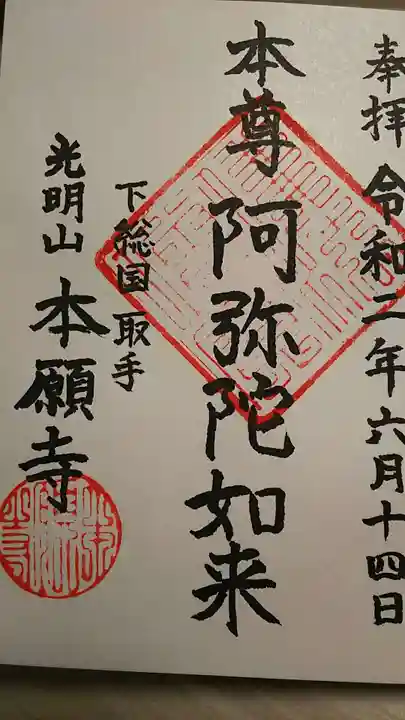 奉拝 令和二年六月十四日
本尊 阿弥陀如来
下総国取手
光明山 本願寺